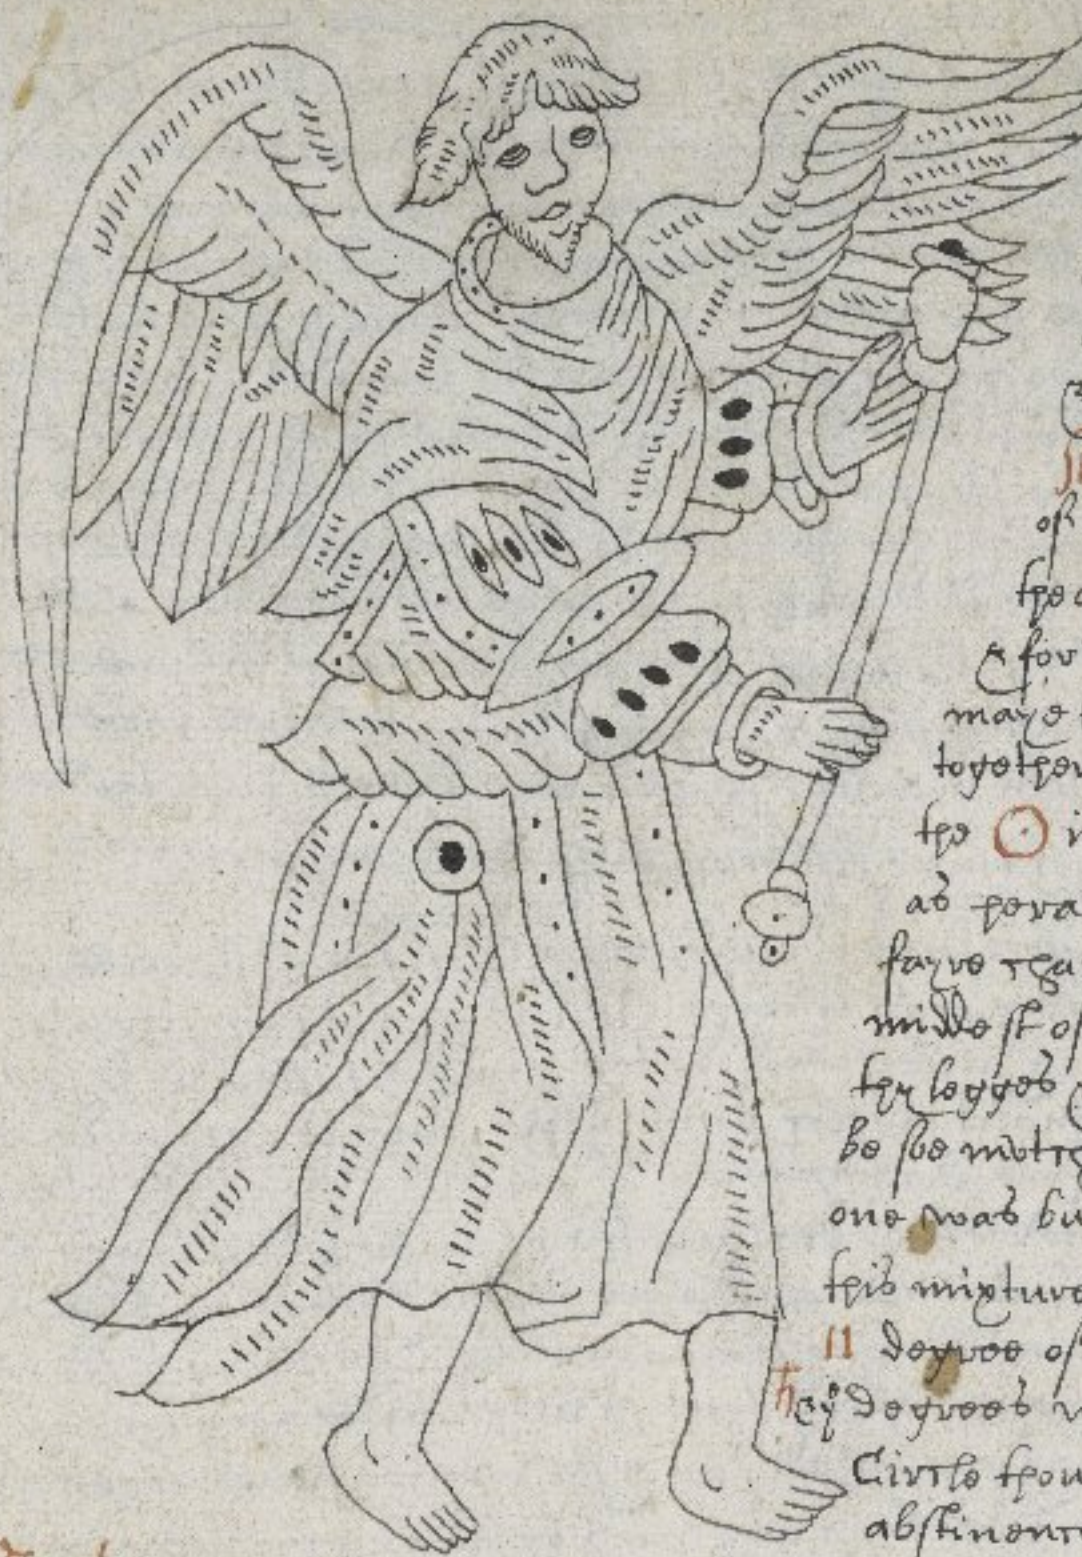 of
the
& for
maye
together
the ☉ i
as pera
fayre
middest of
thy legges
be soe
one was bu
this mixture
II degree of
degrees
Circle thou
abstinenc